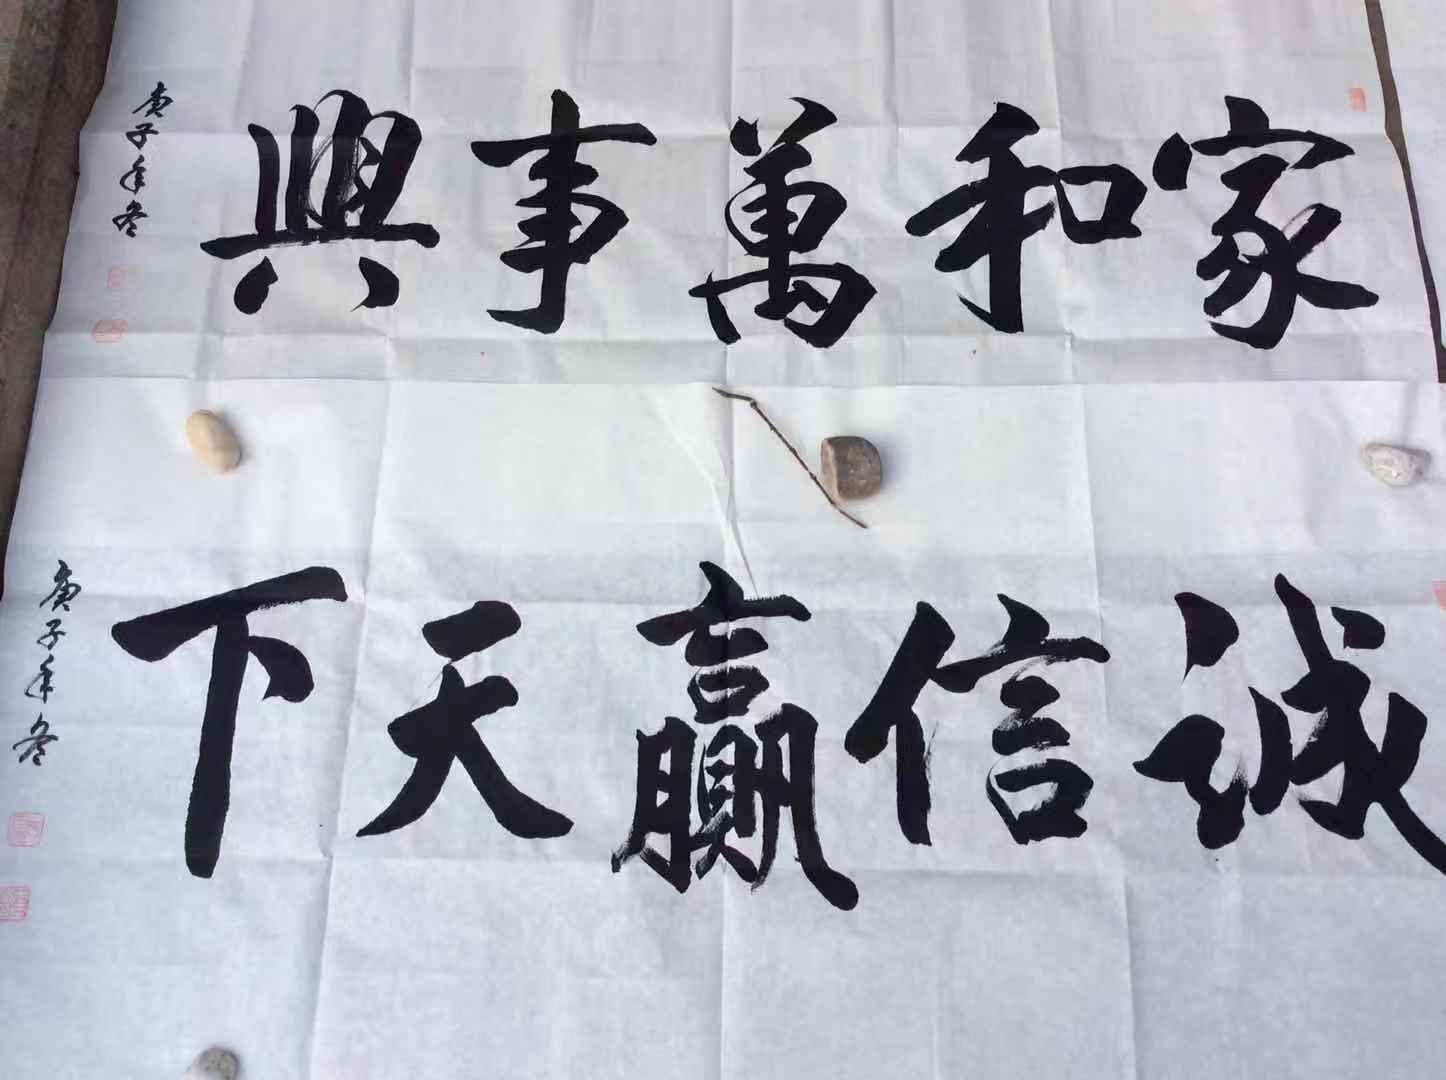 家和萬事興
庚子年冬
誠信贏天下
庚子年冬